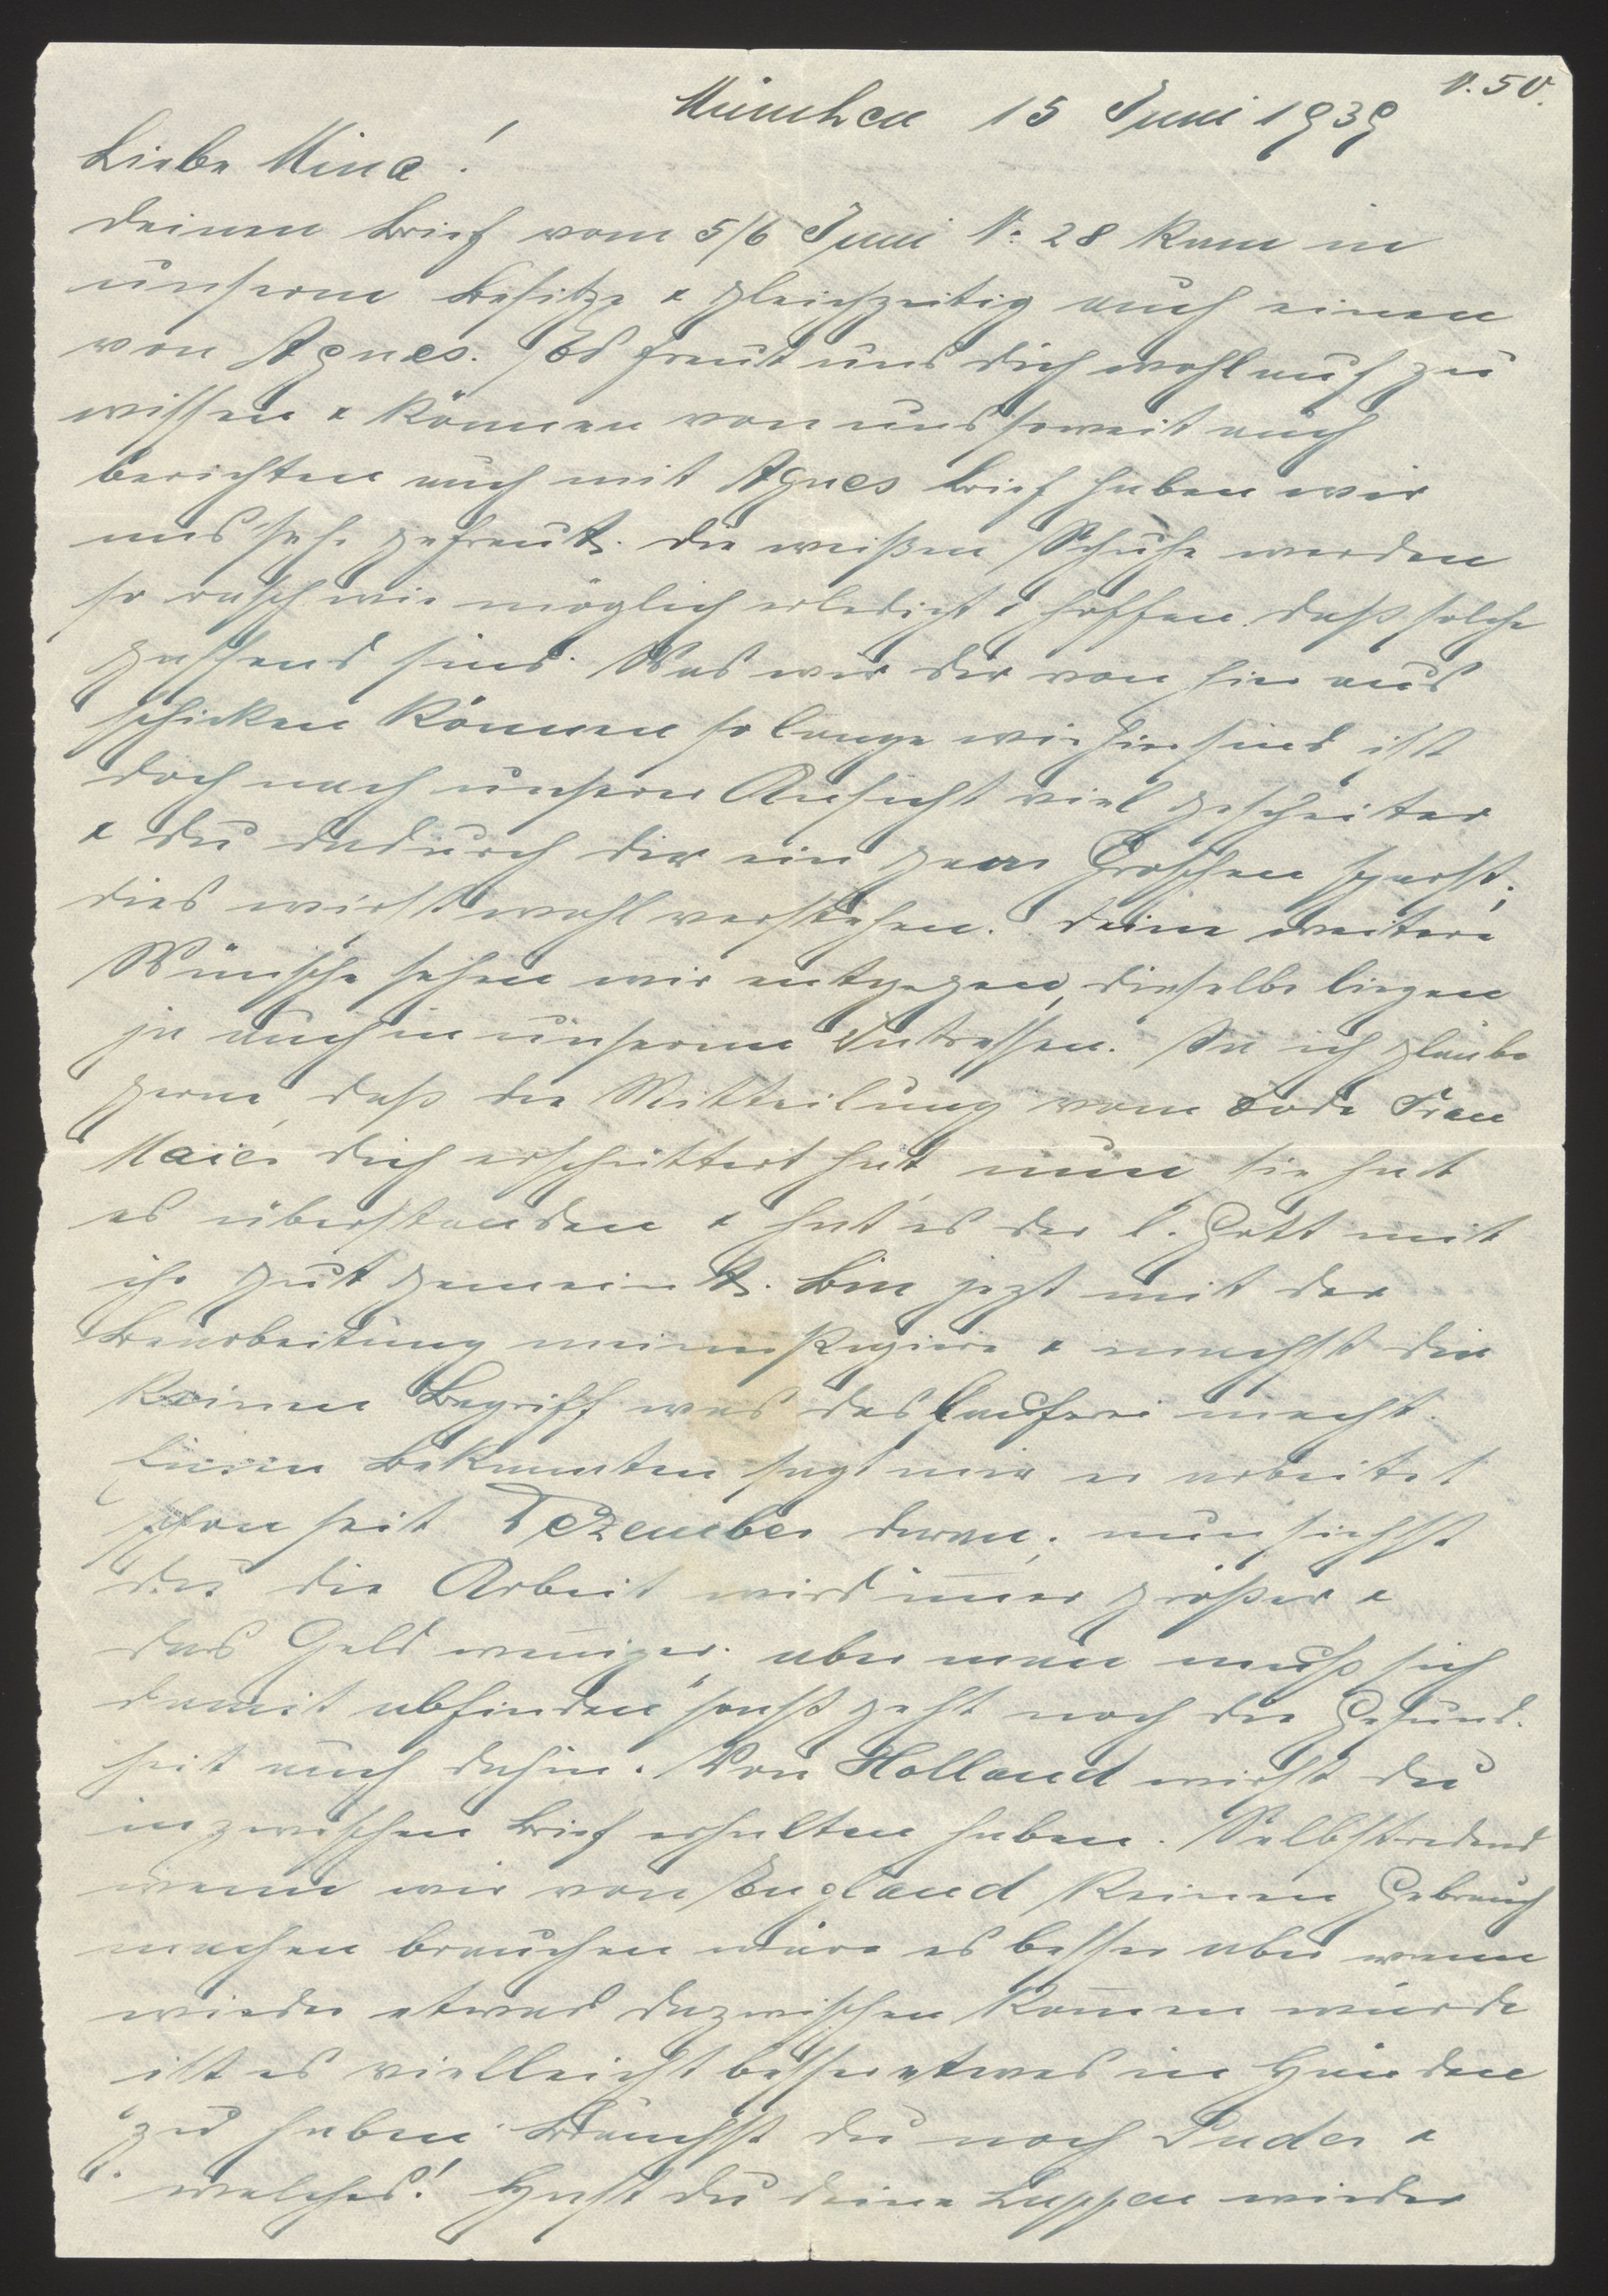 N. 50.
München 15 Juni 1939
Liebe Mina!
deinen Brief vom 5/6 Juni N. 28 kam in
unserem Besitze & gleichzeitig auch einen
von Agnes. Es freut uns dich wohlauf zu
wissen & können von uns soweit auch
berichten auch mit Agnes Brief haben wir
uns sehr gefreut. Die weißen Schuhe werden
so rasch wie möglich erledigt & hoffen daß solche
passend sind. Was wir dir von hier aus
schicken können so lange wir hier sind ist
doch nach unserer Ansicht viel gescheiter
& du dadurch dir ein paar Groschen sparst,
dies wirst wohl verstehen. Deine weitere
Wünsche sehen wir entgegen, dieselbe liegen
ja auch in unserem Intressen. Ja ich glaube
gerne, daß die Mitteilung vom Tode Frau
Maier dich erschüttert hat nun sie hat
es überstanden & hat es der l. Gott mit
ihr gut gemeint. Bin jezt mit der
Bearbeitung meiner Papiere & machst dir
keinen Begriff was das Lauferei macht.
Einen Bekannten sagt mir er arbeitet
schon seit Dezember daran, nun siehst
du die Arbeit wird im̅er größer &
das Geld weniger, aber man muß sich
damit abfinden sonst geht noch die Gesund-
heit auch dahin. Von Holland wirst du
inzwischen Brief erhalten haben. Selbstredend
wenn wir von England keinen Gebrauch
machen brauchen wäre es besser aber wenn
wieder etwas dazwischen kom̅en würde
ist es vielleicht besser etwas in Händen
zu haben. Brauchst du noch Puder &
welches! Hast du deine Lappen wieder